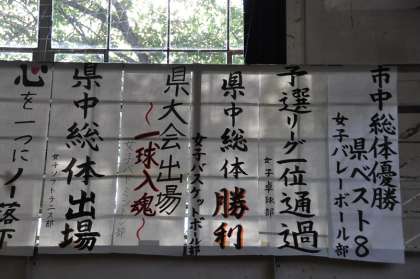 市中総体優勝
県ベスト8
女子バレーボール部
予選リーグ一位通過
女子卓球部
県中総体 勝利
女子バスケットボール部
県大会出場
~一球入魂~
県中総体出場
女子ソフトテニス部
心を一つにノー落下